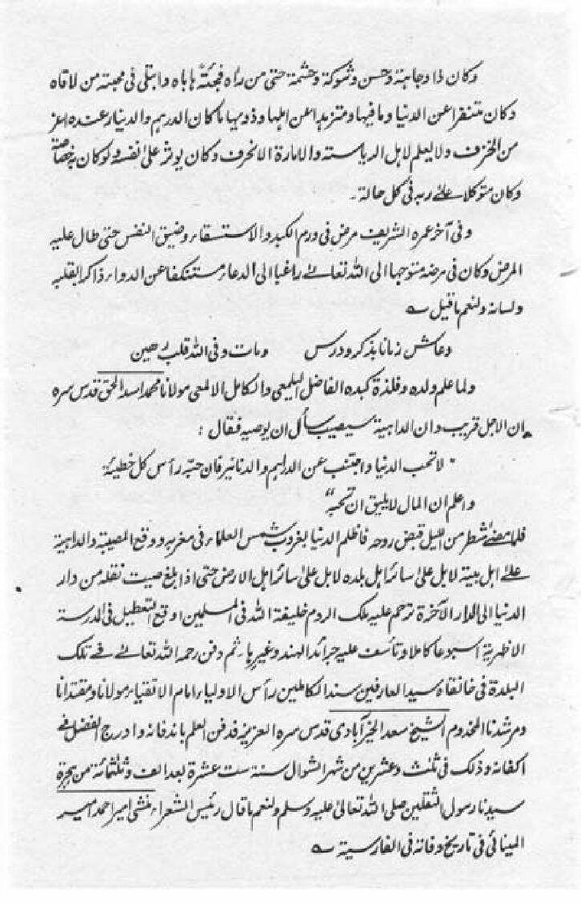 وكان ذا وجاهة وحسن وشوكة وحشمة حتى من رآه فجئة هابه وابتلى فى محبته من لاقاه
وكان متنفرا عن الدنيا وما فيها ومتزهدا عن اهلها وذويها ما كان الدرهم والدينار عنده اعز
من الخزف ولا يعلم لاهل الرياسته والامارة الا نحرف وكان يوثر على نفسه ولو كان بخصاصة
وكان متوكلا على ربه فى كل حالة۔
وفى آخر عمره الشريف مرض فى ورم الكبد والاستسقاء وضيق النفس حتى طال عليه
المرض وكان فى مرضه متوجها الى الله تعالى راغبا الى الدعاء مستنكفا عن الدواء ذاكرا بقلبه
ولسانه ولنعم ما قيل ؎
وعاش زمانا بذكر ودرس ومات وفى الله قلب رهين
ولما علم ولده وفلذة كبده الفاضل اليلمعى والكامل الالمعى مولانا محمد اسد الحق قدس سره
ان الاجل قريب وان الداهية سيصيب سأل ان يوصيه فقال :
" لا تحب الدنيا واجتنب عن الدراهم والدنانير فان حبه رأس كل خطيئة
واعلم ان المال لا يليق ان تحبه "
فلما مضى شطر من الليل قبض روحه فاظلم الدنيا بغروب شمس العلماء فى مغربه ووقع المصيبة والداهية
على اهل بيته لا بل على سائر اهل بلده لا بل على سائر اهل الارض حتى اذا بلغ صيت نقله من دار
الدنيا الى الدار الآخرة ترحم عليه ملك الروم خليفة الله فى المسلمين اوقع التعطيل فى المدرسة
الاظهرية اسبوعا كاملا وتأسف عليه جرائد الهند وغيرها۔ ثم دفن رحمه الله تعالى فى تلك
البلدة فى خانقاه سيد العارفين سند الكاملين رأس الاولياء امام الاتقياء مولانا ومقتدانا
ومرشدنا المخدوم الشيخ سعد الخيرآبادى قدس سره العزيز فدفن العلم باندفانه وادرج الفضل فى
اكفانه وذلك فى ثلث وعشرين من شهر الشوال سنة ست عشرة بعد الف وثلثمائة من هجرة
سيدنا رسول الثقلين صلى الله تعالى عليه وسلم ولنعم ما قال رئيس الشعراء منشى امير احمد امير
المينائى فى تاريخ وفاته فى الفارسية ؎